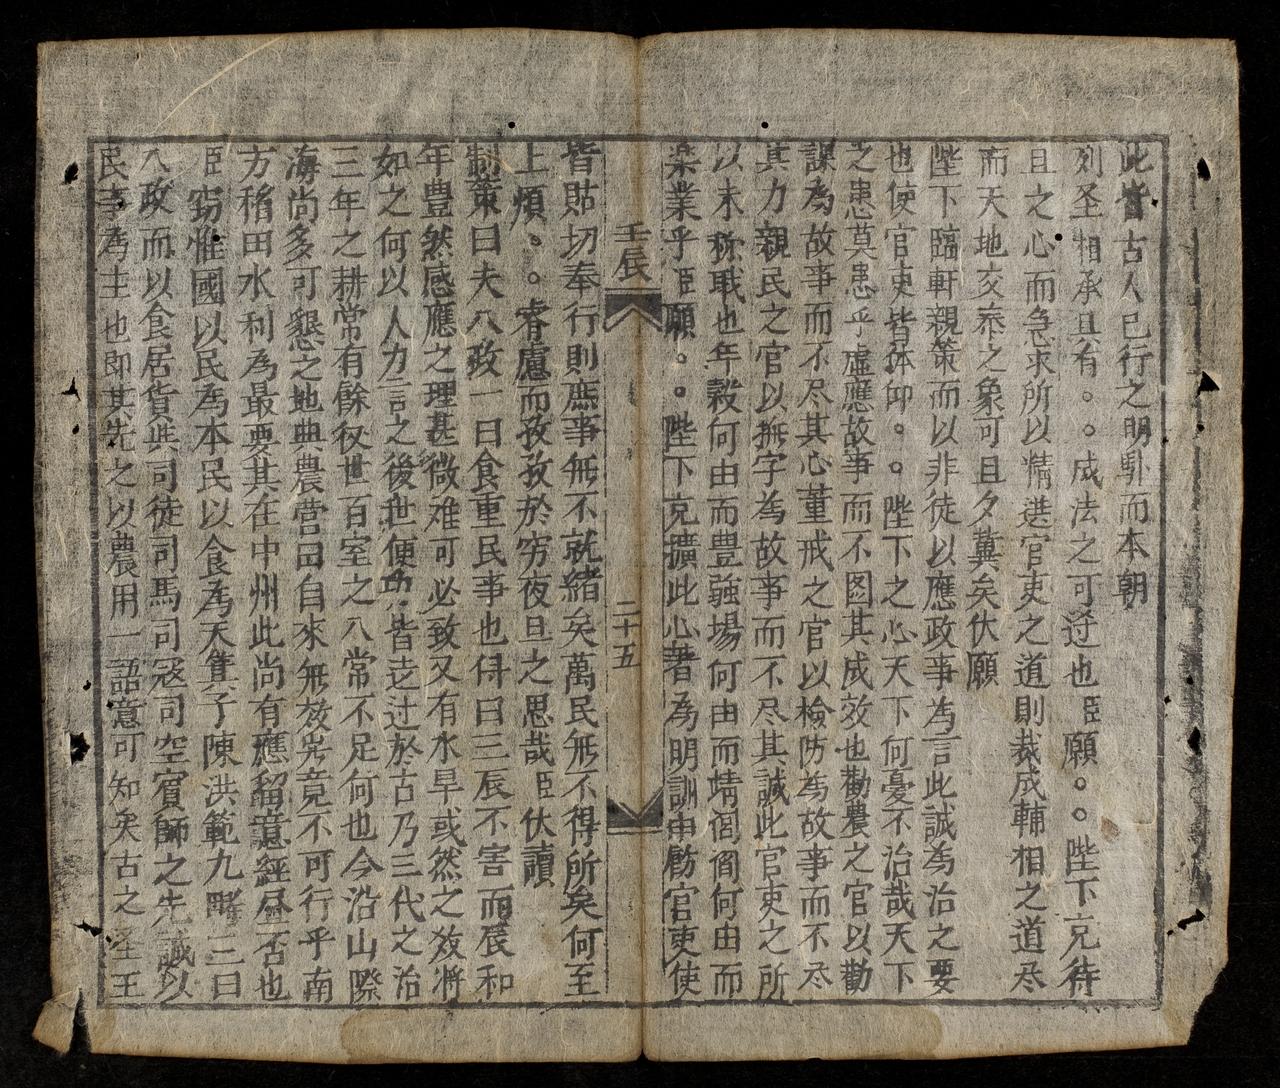 此皆古人已行之明馱而本朝
列圣相承且有。。成法之可迂也臣願。。陛下克待
且之心而急求所以精選官吏之道則裁成輔相之道尽
而天地交泰之象可且夕冀矣伏願
陛下臨軒親策而以非徒以應政事為言此誠為治之要
也使官吏皆体卬。。陛下之心天下何憂不治哉天下
之患莫患乎虛應故事而不图其成效也勸農之官以勸
課為故事而不尽其心董戒之官以檢防為故事而不尽
其力親民之官以撫字為故事而不尽其誠此官吏之所
以未称職也年穀何由而豊強場何由而靖閭閻何由而
楽業乎臣願。。陛下克擴此心著為明訓申勵官吏使
壬辰
二十五
皆貼切奉行則庶事無不就緒矣萬民無不得所矣何至
上煩。。睿慮而孜孜於穷夜旦之思哉臣伏讀
制策曰夫八政一曰食重民事也得曰三辰不害而辰和
年豊然感應之理甚微难可必致又有水旱或然之效將
如之何以人力言之後世便巧皆迂过於古乃三代之治
三年之耕常有餘役世百室之八常不足何也今沿山際
海尚多可懇之地典農营田自來無效岂竟不可行乎南
方稽田水利為最要其在中州此尚有應留意經昼否也
臣窃惟國以民為本民以食為天箕子陳洪範九畴三曰
八政而以食居貨與司徒司馬司寇司空賓師之先誠以
民事為主也即其先之以農用一語意可知矣古之圣王